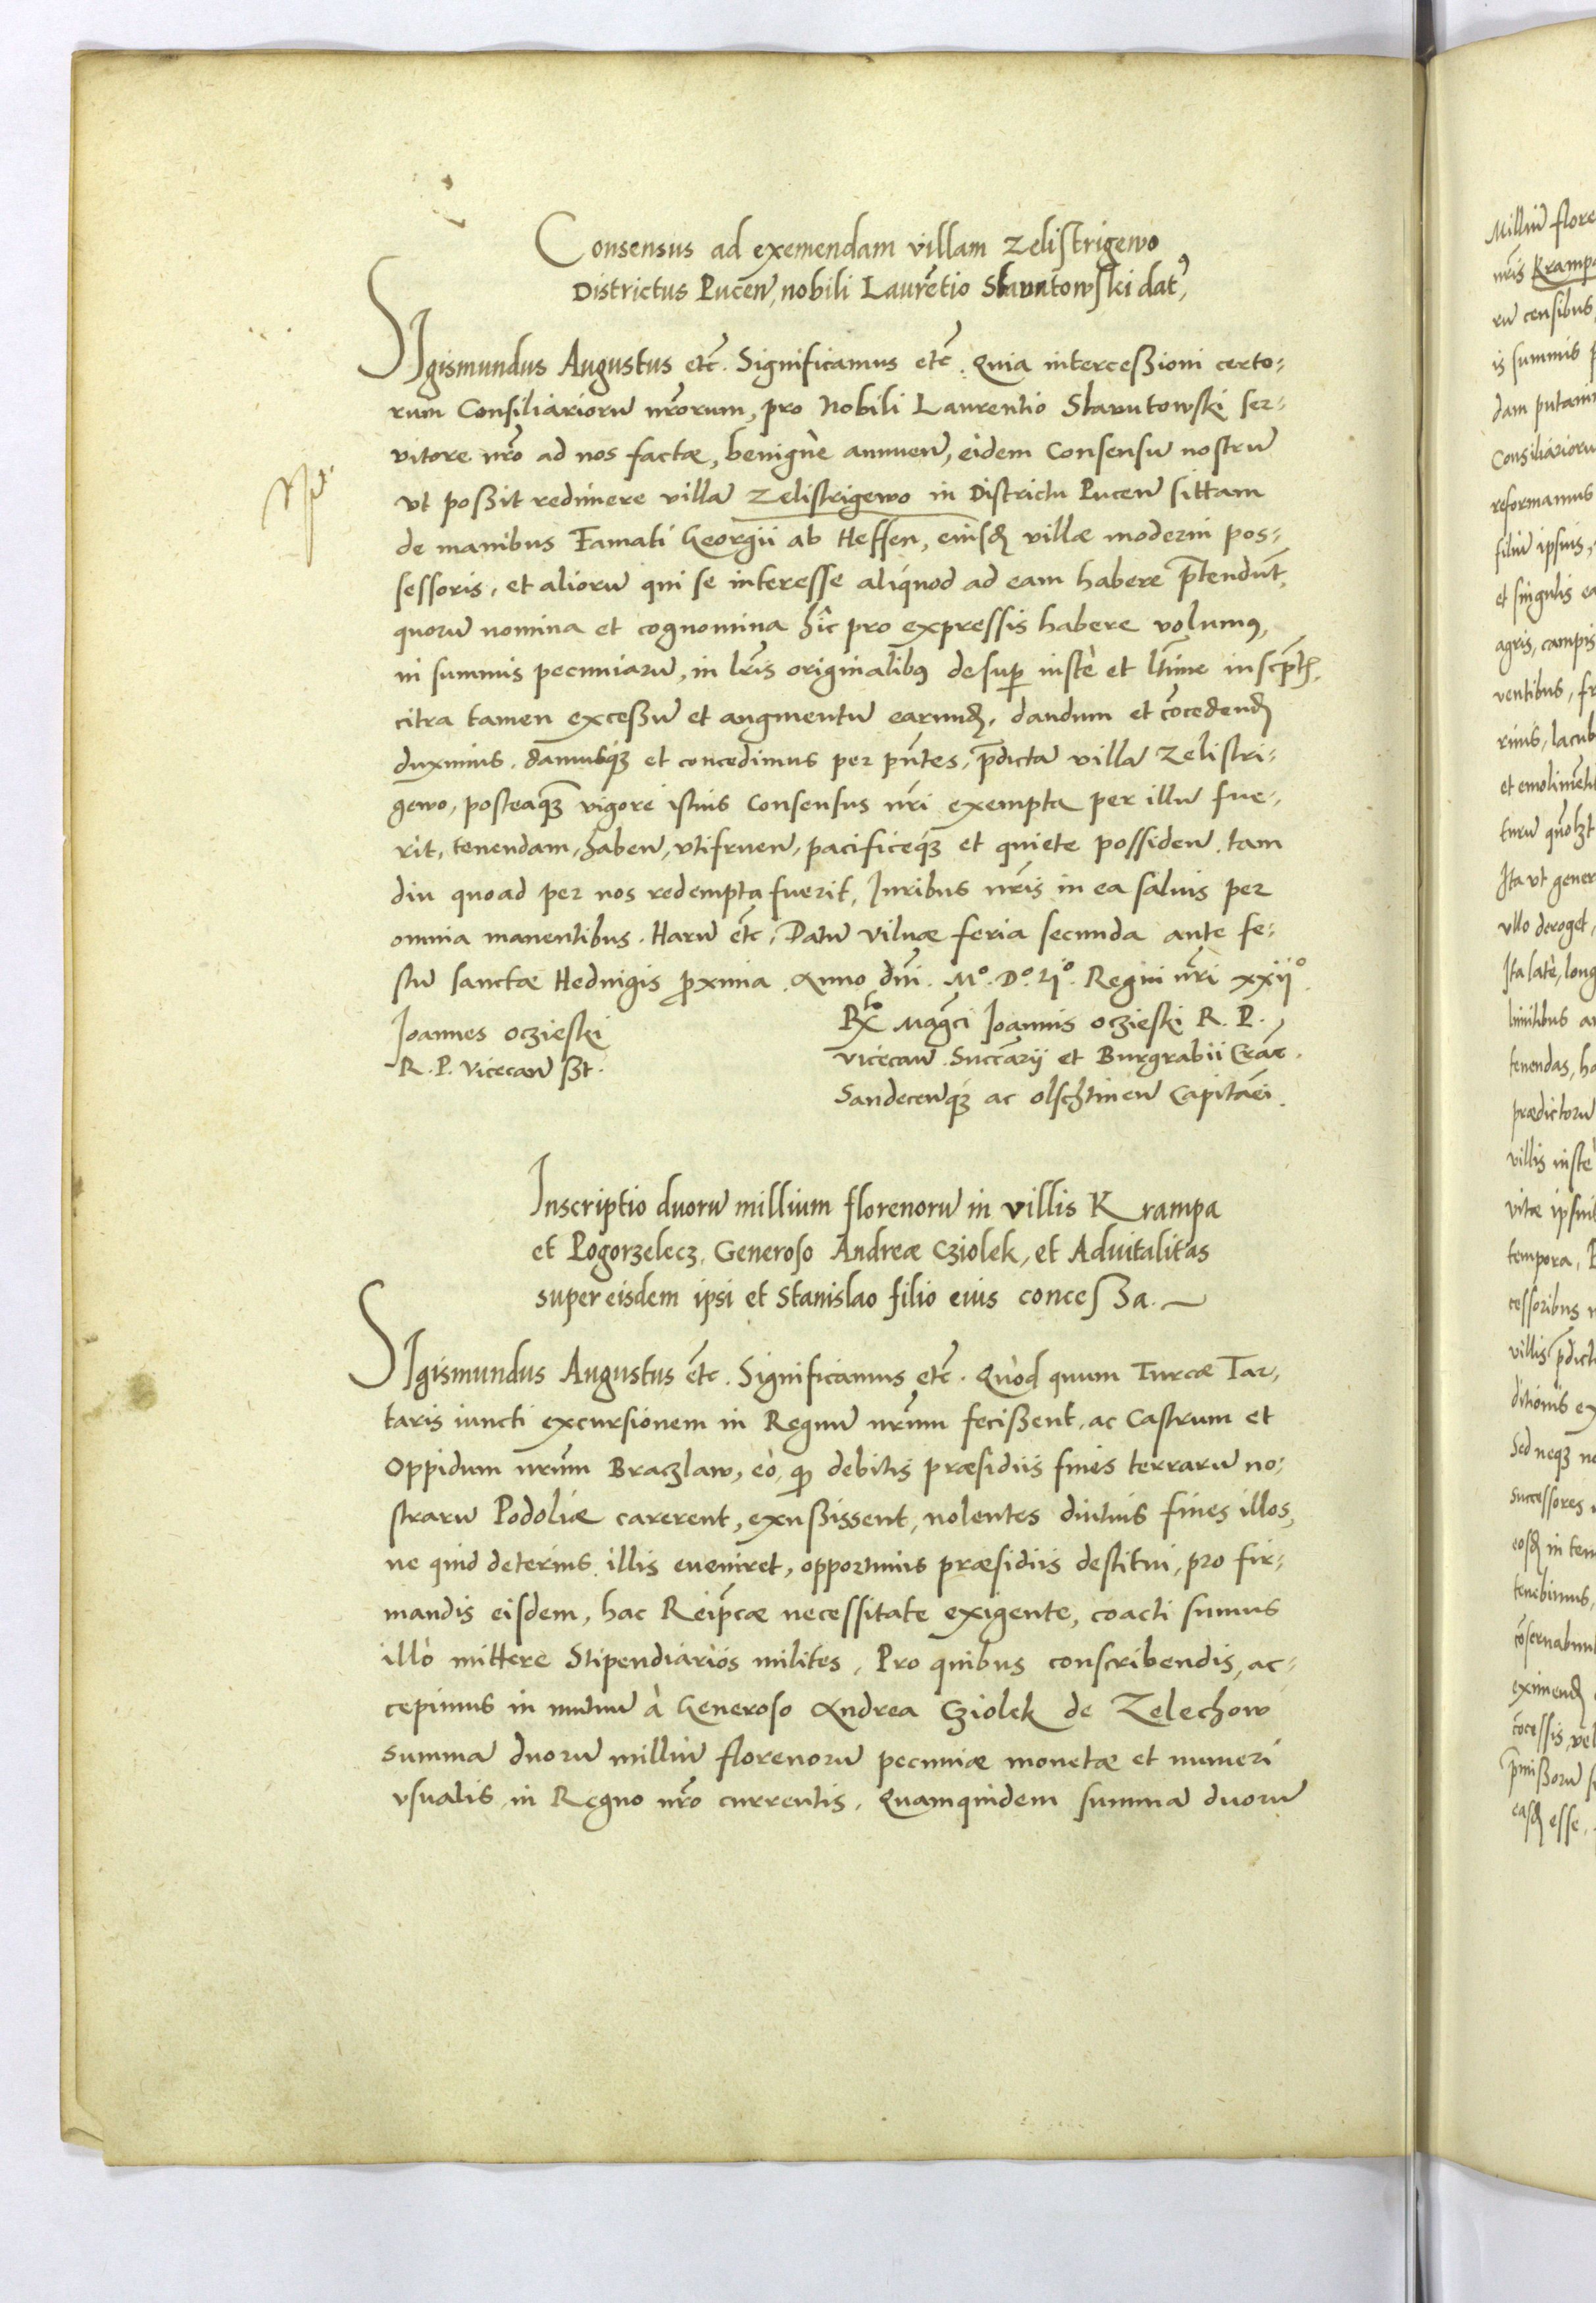 Consensus ad exemendam villam Zelistrigewo
Districtus Pucen̄, nobili Laurẽtio Slavutowski datꝰ,
SIgismundus Augustus etc̃. Significamus etc̃. Quia interceßioni certo:
rum Consiliarioru̅ nr̃orum, pro Nobili Laurentio Slavutowski ser:
vitore nr̃o ad nos factæ, benignè annuen̄, eidem Consensu̅ nostru̅
vt poßit redimere villa̅ Zelistrigewo in Districtu Pucen̄ sittam
de manibus Famati Georgii ab Heffen, eiusđ villæ moderni pos:
sessoris, et alioru̅ qui se interesse aliquod ad eam habere p̅tendu̅t,
quoru̅ nomina et cognomina hîc pro expressis habere volumꝰ,
in summis pecuniaru̅, in lr̃is originalibꝰ desuꝑ iustè et lt̃ime inscp̃tꝭ,
citra tamen exceßu̅ et augmentu̅ earunđ, dandum et co̅cedenđ
duximus, damusqꝫ et concedimus per pn̄tes, p̅dicta̅ villa̅ Zelistri:
gewo, posteaqꝫ vigore istius Consensus nr̃i exempta per illu̅ fue:
rit, tenendam, haben̄, vtifruen̄, pacificeqꝫ et quiete possiden̄, tam
diu quoad per nos redempta fuerit, Iuribus nr̃is in ea saluis per
omnia manentibus. Haru̅ etc̃. Datu̅ Vilnæ feria secunda ante fe:
stu̅ sanctæ Heduigis ꝓxima. Anno dn̄i. Mº. Dº. Ljº. Regni nr̃i xxijº.
Ioannes Oczieski
R. P. Vicecan̄ ßt.
Rlo Magc̃i Ioannis Oczieski R. P.
Vicecan̄. Succa̅rij et Burgrabii Crac̃.
Sandecen̄qꝫ ac Olschtinen̄ Capita̅ei.
Inscriptio duoru̅ millium florenoru̅ in villis Krampa
et Pogorzelecz, Generoso Andreæ Cziolek, et Aduitalitas
super eisdem ipsi et Stanislao filio eius conceßa.
SIgismundus Augustus etc̃. Significamus etc̃. Quòd quum Turcæ Tar,
taris iuncti excursionem in Regnu̅ nr̃um fecißent, ac Castrum et
Oppidum nr̃um Braczlaw, eò, qꝫ debitis præsidiis fines terraru̅ no:
straru̅ Podoliæ carerent, exußissent, nolentes diutius fines illos,
ne quid deterius illis eueniret, opportunis præsidiis destitui, pro fir:
mandis eisdem, hac Reip̃cæ necessitate exigente, coacti sumus
illò mittere Stipendiarios milites, Pro quibus conscribendis, ac:
cepimus in mutuu̅ à Generoso Andrea Cziolek de Zelechow
summa̅ duoru̅ milliu̅ florenoru̅ pecuniæ monetæ et numeri
vsualis, in Regno nr̃o currentis, Quamquidem summa̅ duoru̅
Milliu̅ flore
nr̃is Kramp
ru̅ censibus
is summis
dam putam
Consiliarioru
reformamus
filiu̅ ipsius,
et singulis ea
agris, campis
ventibus, fr
riuis, lacub
et emolime̅t
turu̅
Ita vt gener
vllo deroget,
Ita latè, long
limitibus
tenendas, ha
prædictoru̅
villis iustè
vitæ ipsiu
tempora,
cessoribus
villis p̅dict
ditionis ex
Sed neqꝫ ne
successores
eosđ in ten
tenebimus,
co̅seruabim
eximenđ
co̅cessis, vel
p̅mißoru̅
easđ esse,